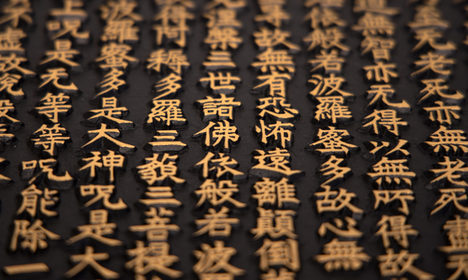 至无老死亦無老死
道無智亦无得以無所得故
依般若波羅蜜多故心無
㝵故無有恐怖遠離顛倒
涅槃三世諸佛依般若波
得阿耨多羅三藐三菩提
波羅蜜多是大神呪是大
上呪是无等等呪能除一
不虛故說